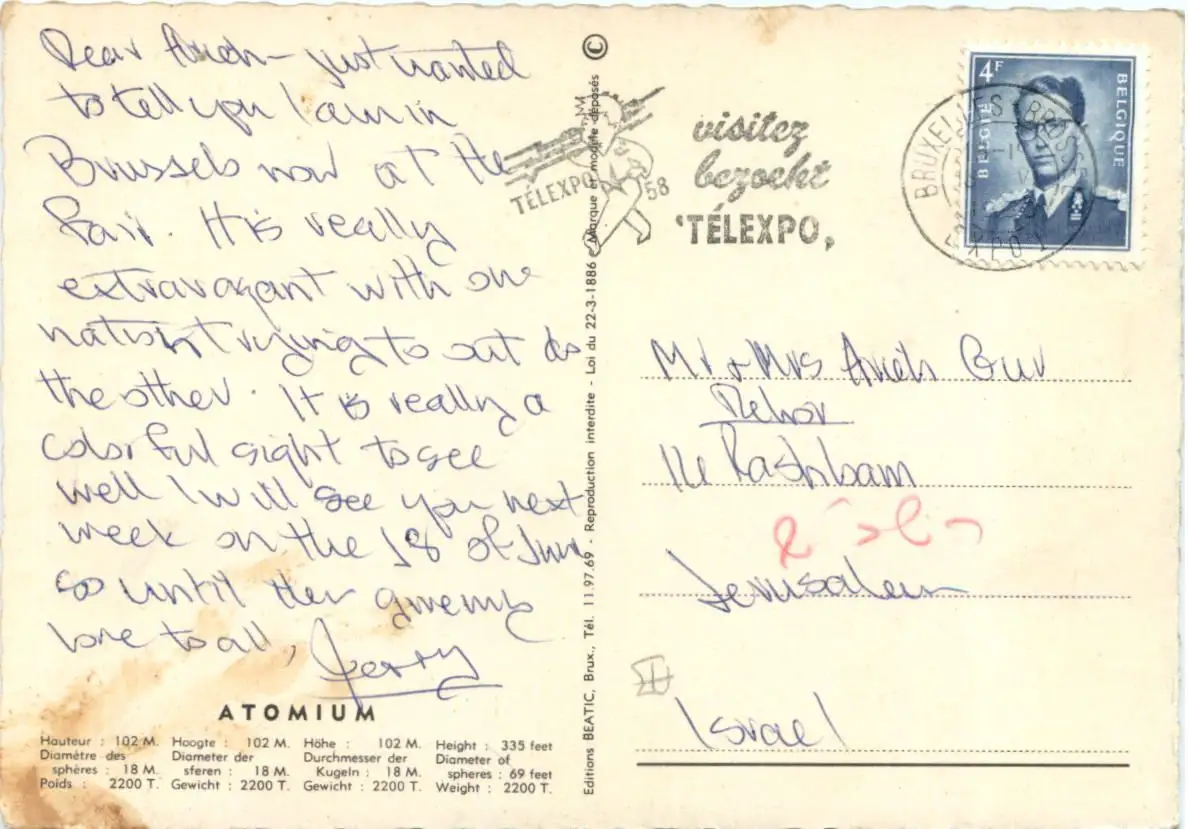 Dear Arieh - just wanted
to tell you I am in
Brussels now at the
Fair. It is really
extravagant with one
nation trying to out do
the other. It is really a
colorful sight to see
well I will see you next
week on the 18 of June
so until then give my
love to all,
Jerry
ATOMIUM
Hauteur : 102 M.
Diamètre des
sphères : 18 M.
Poids : 2200 T.
Hoogte : 102 M.
Diameter der
sferen : 18 M.
Gewicht : 2200 T.
Höhe : 102 M.
Durchmesser der
Kugeln : 18 M.
Gewicht : 2200 T.
Height : 335 feet
Diameter of
spheres : 69 feet
Weight : 2200 T.
Editions BEATIC, Brux., Tél. 11.97.69 - Reproduction interdite - Loi du 22-3-1886 Marque et modèle déposés ©
TÉLEXPO 58
visitez
bezoekt
'TÉLEXPO,
BRUXELLES
4F
BELGIE
BELGIQUE
Mr & Mrs Arieh Gur
Rehov
Rashbam
Jerusalem
Israel